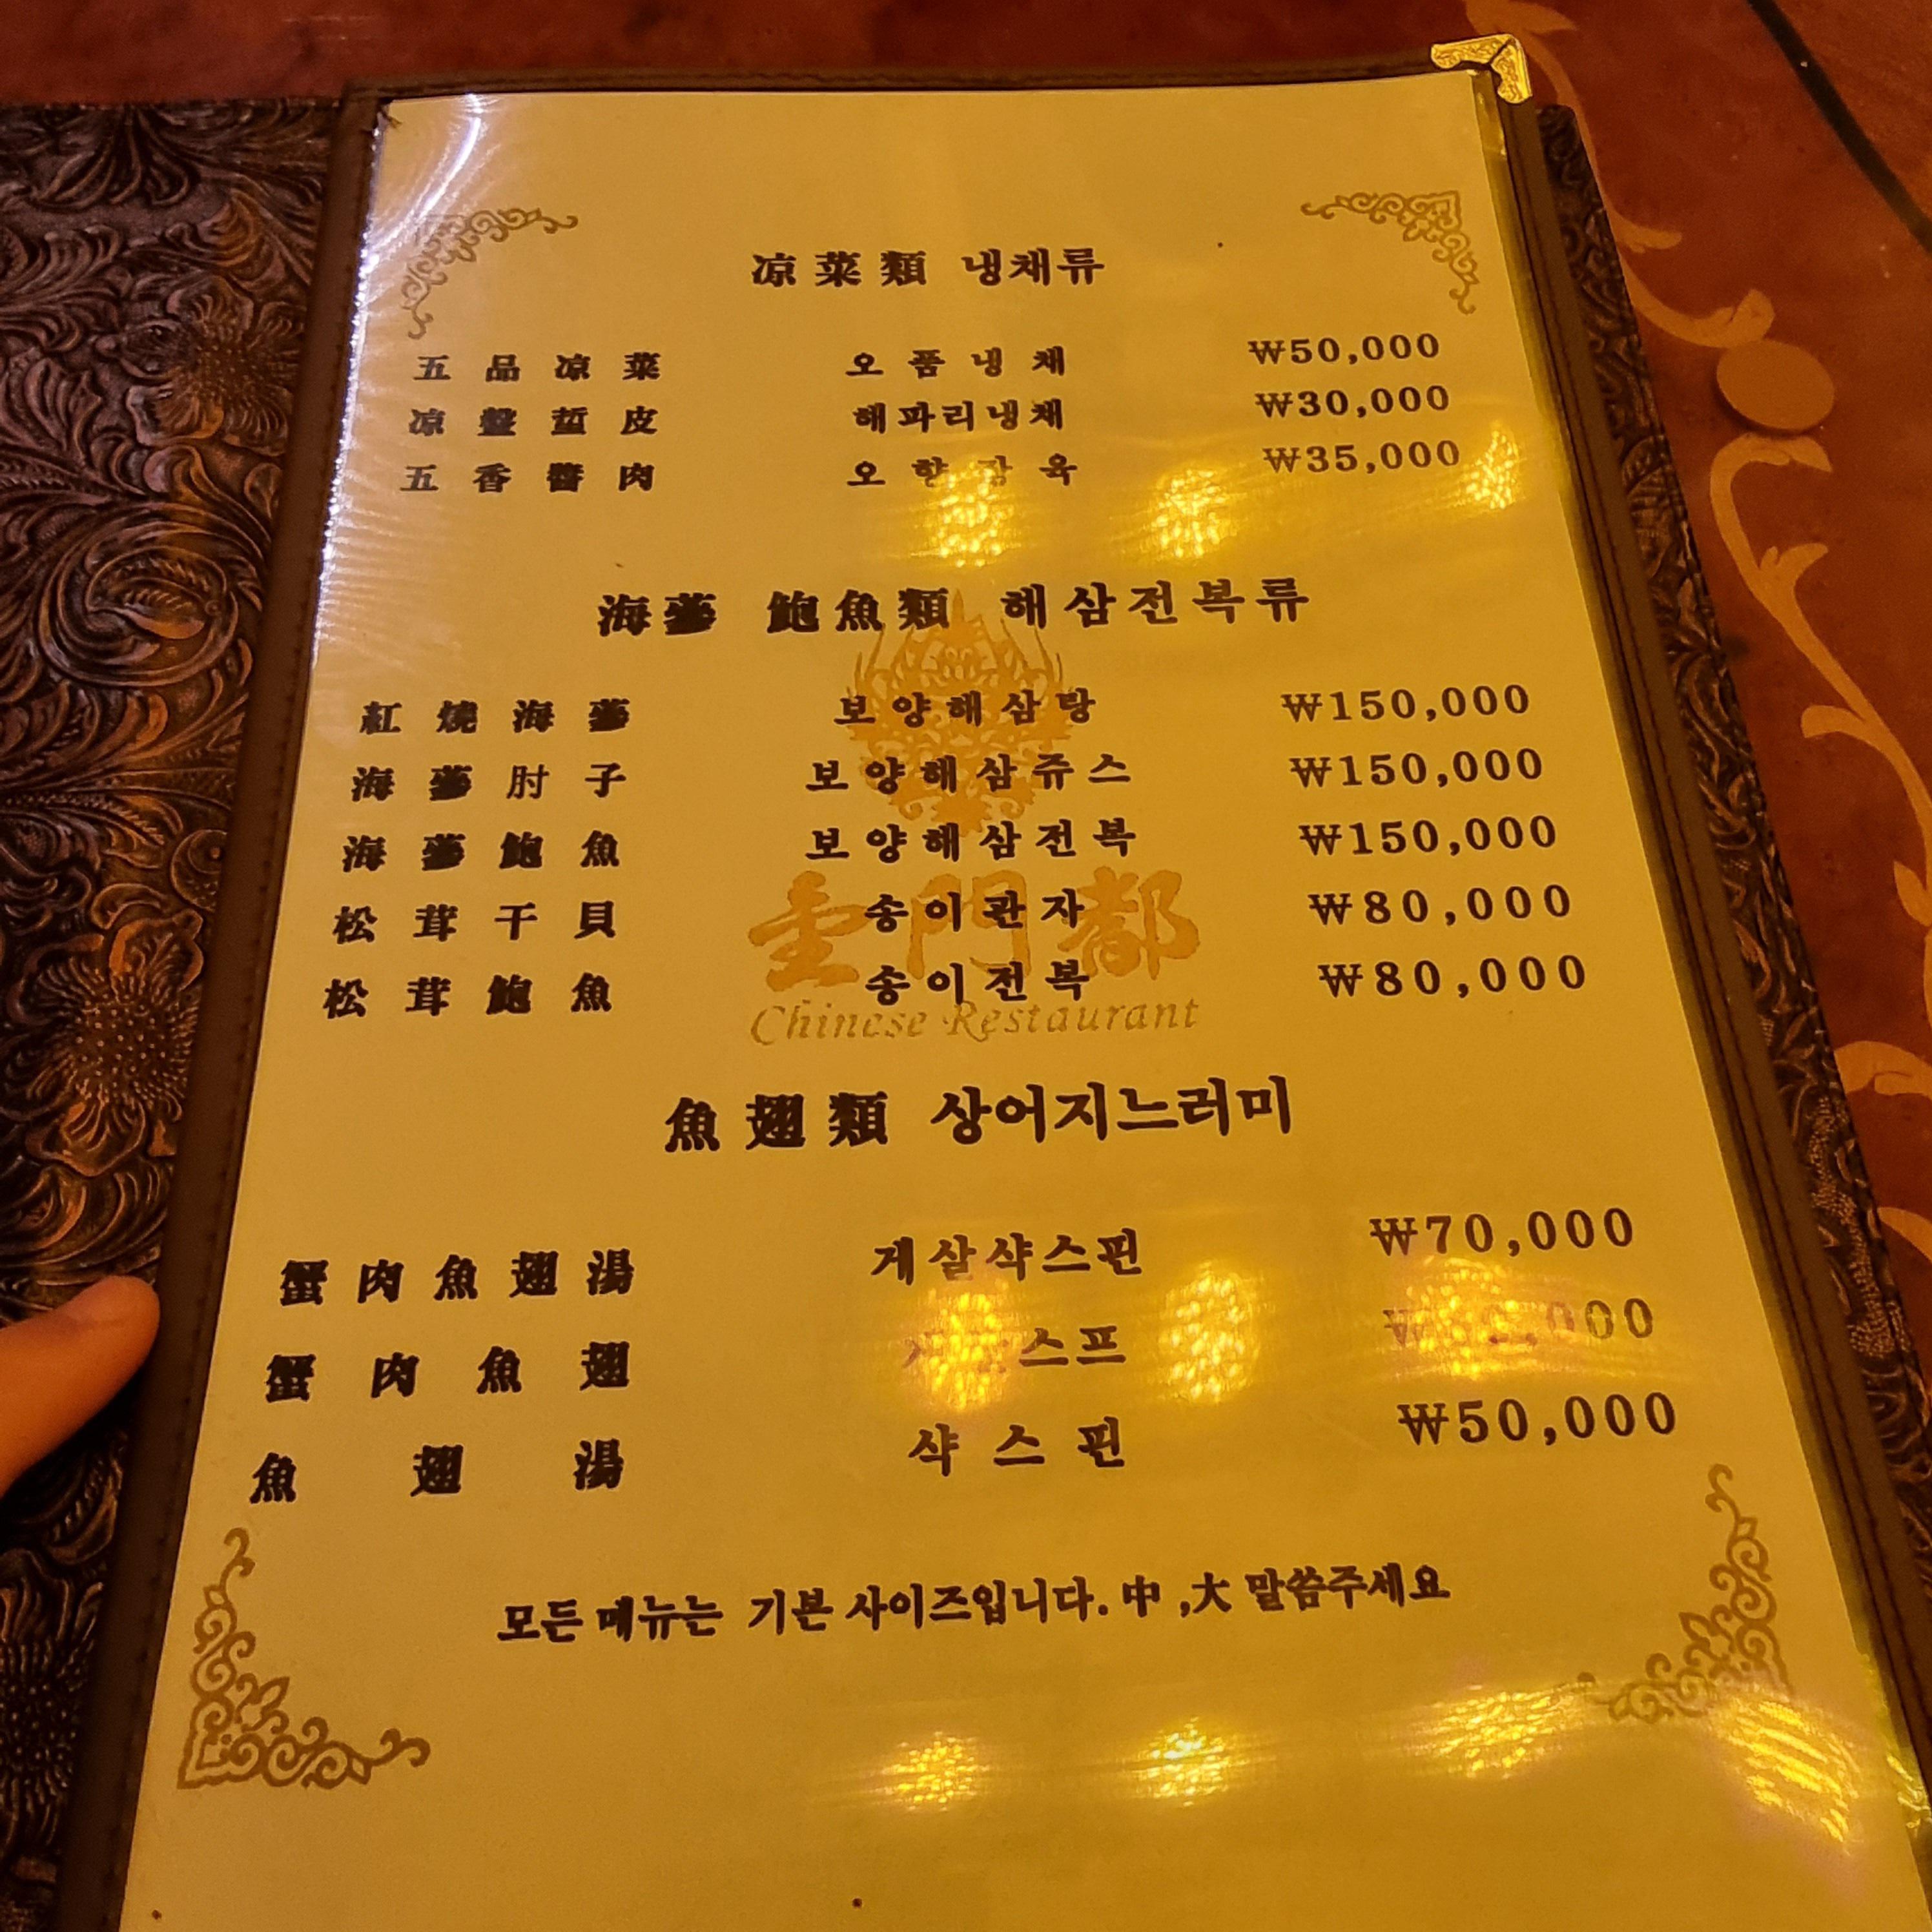 凉菜類 냉채류
五品凉菜 오품냉채 ₩50,000
凉盤蜇皮 해파리냉채 ₩30,000
五香醬肉 오향장육 ₩35,000
海蔘 鮑魚類 해삼전복류
紅燒海蔘 보양해삼탕 ₩150,000
海蔘肘子 보양해삼쥬스 ₩150,000
海蔘鮑魚 보양해삼전복 ₩150,000
松茸干貝 송이관자 ₩80,000
門都
松茸鮑魚 송이전복 ₩80,000
Chinese Restaurant
魚翅類 상어지느러미
蟹肉魚翅湯 게살샥스핀 ₩70,000
蟹肉魚翅 스프
魚翅湯 샥스핀 ₩50,000
모든 메뉴는 기본 사이즈입니다. 中 ,大 말씀주세요